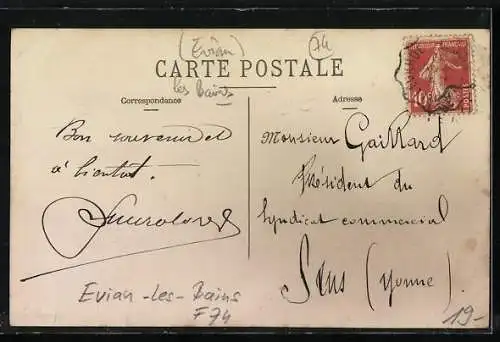 (Evian) 74
les Bains
CARTE POSTALE
Correspondance
Adresse
Bon souvenir et
à bientôt.
Monsieur Gaillard
Président du
Syndicat commercial
Sens (Yonne)
Evian-les-Bains
F74
19-